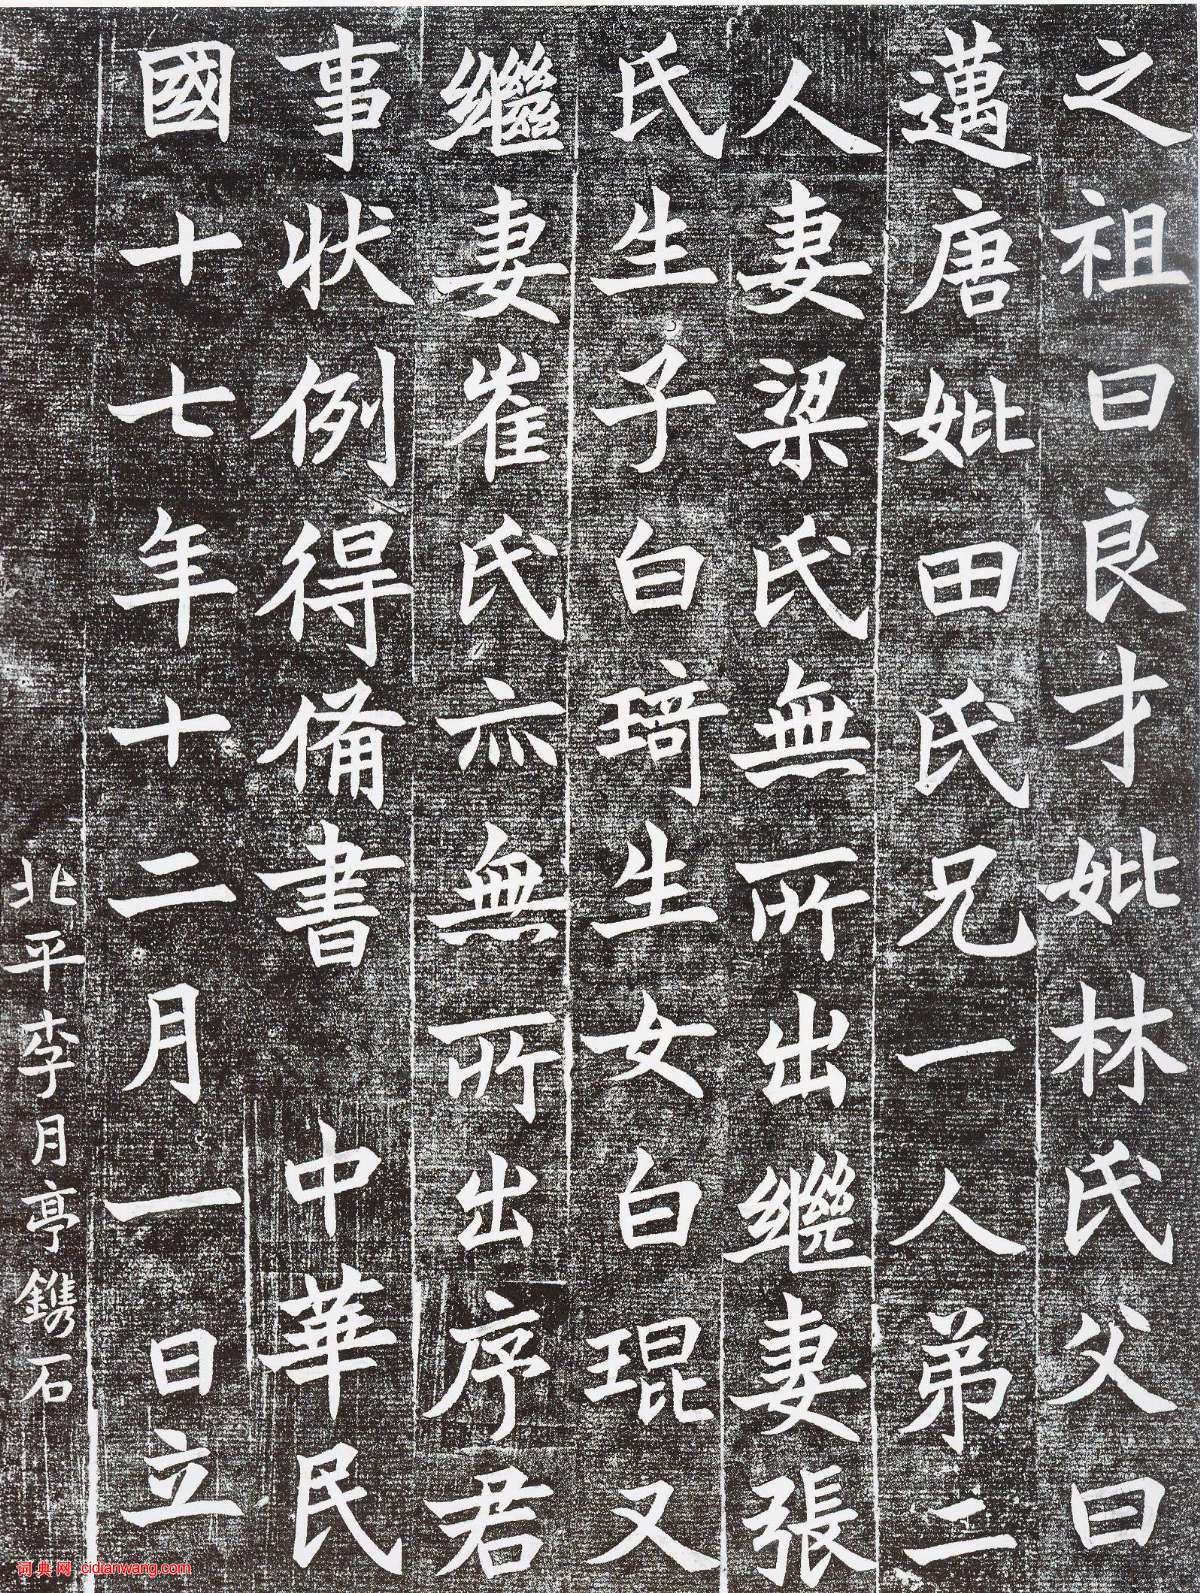 之祖曰良才妣林氏父曰
邁唐妣田氏兄一人弟二
人妻梁氏無所出繼妻張
氏生子白琦生女白琨又
繼妻崔氏亦無所出序君
事狀例得備書 中華民
國十七年十二月一日立
北平李月亭鐫石
词典网 cidianwang.com